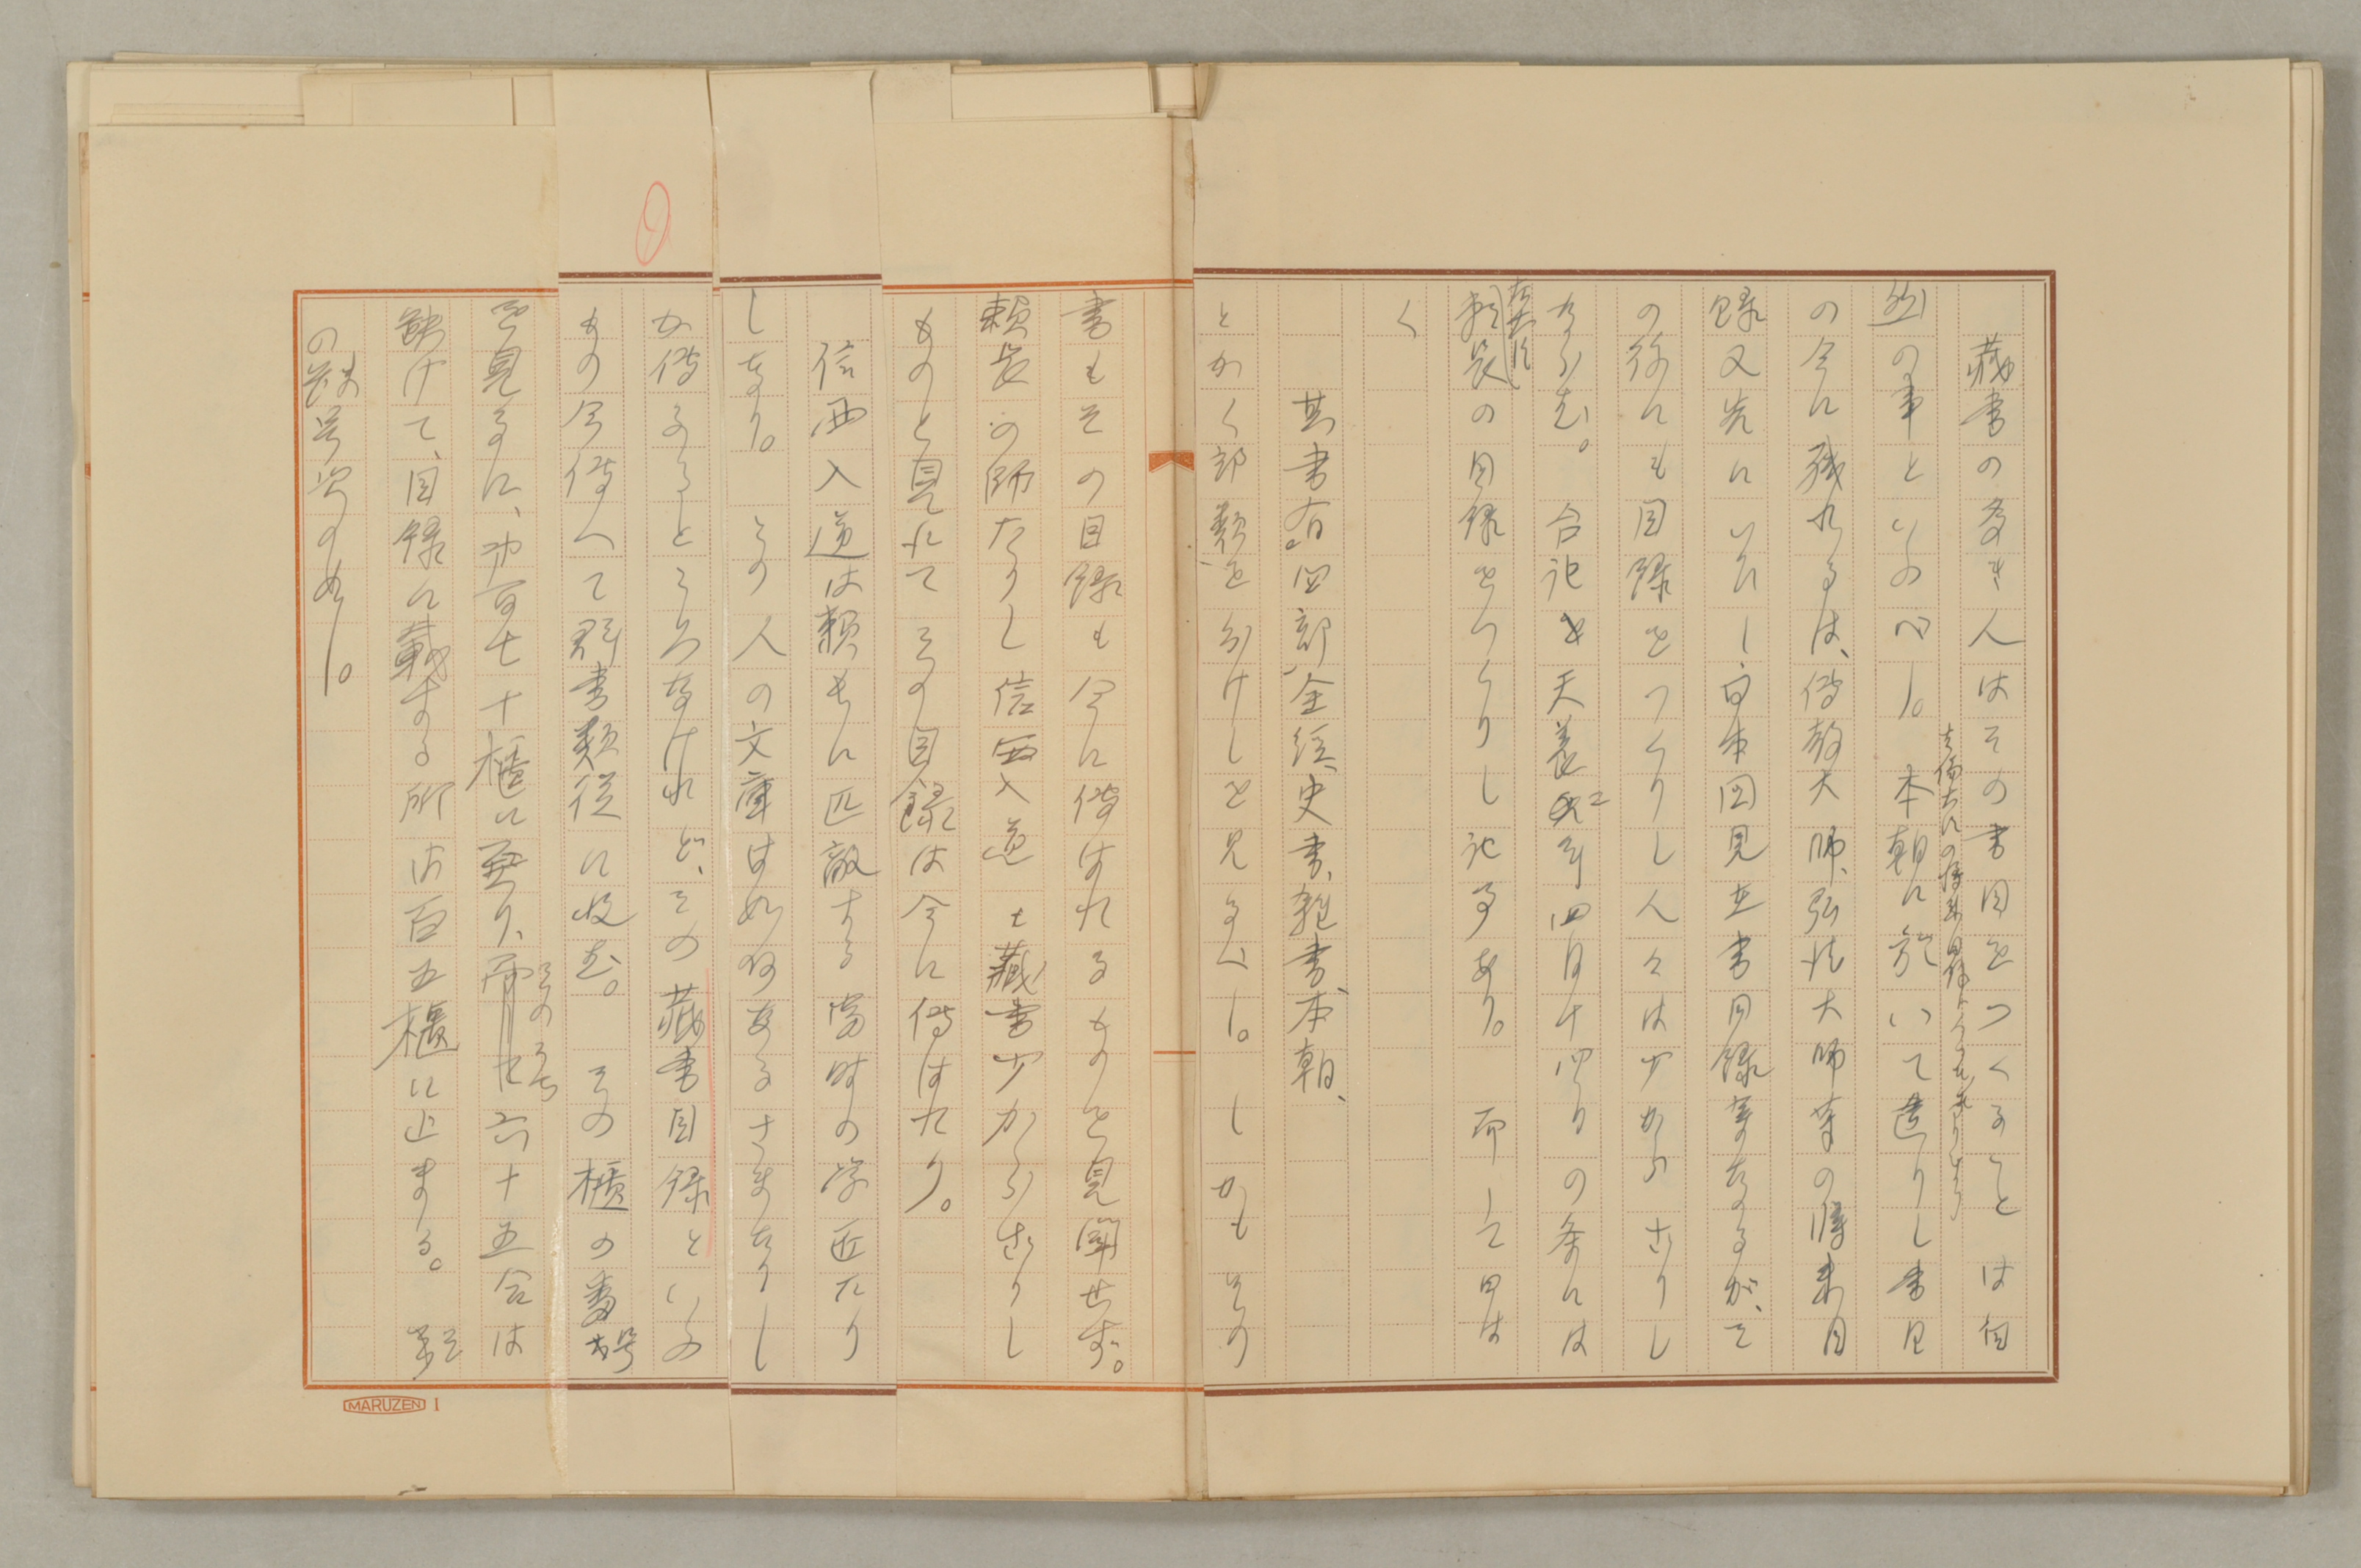 藏書の多き人はその書目をつくることは自
然の事といふべし。本朝に於いて遺りし書目
の今に殘れるは、傳教大師、弘法大師等の將來目
録又先にいひし日本国見在書目録等なるが、そ
の後にも目録をつくりし人々は少からざりし
ならむ。台記を天養二年四月十四日の条には
左大臣
頼長の目録をつくりし記事あり。而して曰は
く
其書有四部、全經、史書、雜書、本朝、
とかく部類を分けしを見るべし。しかもその
書もその目録も今に傳はれるものを見聞せず。
頼長の師たりし信西入道も藏書少からざりし
ものと見れてその目録は今に傳はれり。
信西入道は頼長に匹敵する當時の学匠たり
しなり。その人の文庫は如何なるさまなりし
か傳ふるところなけれど、その藏書目録といふ
もの今傳へて群書類従に收む。その櫃の番号
を見るに、第百七十櫃に至り、
そのうち六十五合は
缺けて、目録に載する所は百五櫃に止まる。
MARUZEN 1